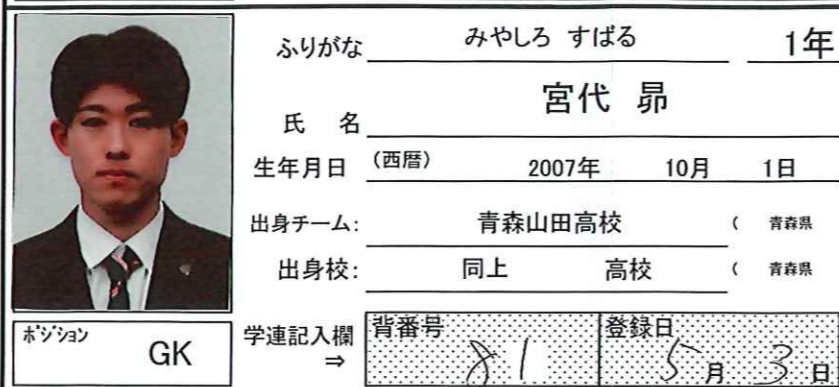 ふりがな みやしろ すばる 1年
氏 名 宮代 昴
生年月日 (西暦) 2007年 10月 1日
出身チーム: 青森山田高校 ( 青森県
出身校: 同上 高校 ( 青森県
ポジション GK
学連記入欄 ⇒ 背番号 81 登録日 5月 3日